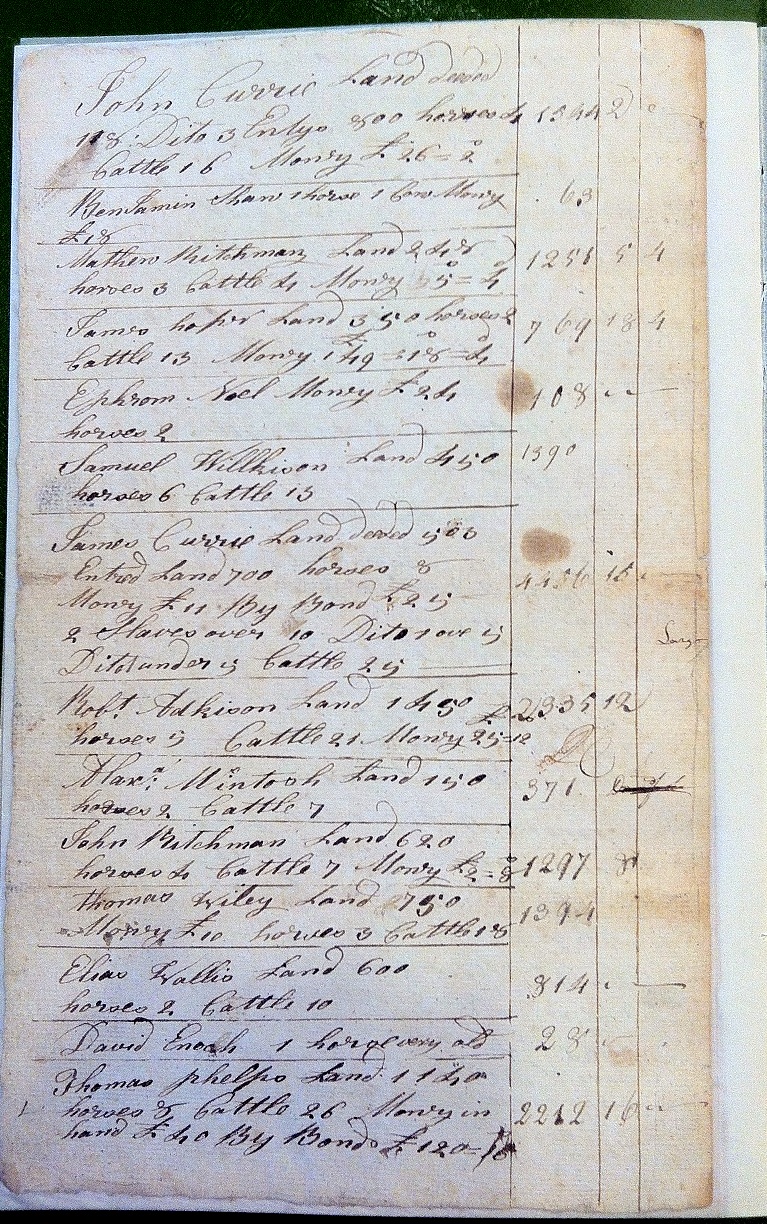 John Currie Land deeded
118: Dito 3 Entys 800 horses 4 1544 2
Cattle 16 Mony £26=2
Benjamin Shaw 1 horse 1 Cow Mony 63
£18
Mathew Ritchman Land 248 1251 5 4
horses 3 Cattle 4 Mony
James Land 350 horses 2 769 18 4
Cattle 13 Mony 149=18=4
Ephrom Noel Mony £24 108
horses 2
Samuel Willkison Land 450 1390
horses 6 Cattle 13
James Currie Land deeded 503
Entred Land 700 horses 8 4456 15
Mony £11 By Bond £25
2 Slaves over 10 Dito 1 ove 5
Dito 1 under 5 Cattle 25
Robt. Adkison Land 1450 2335 12
horses 5 Cattle 21 Mony 25=12
Alaxr. McIntosh Land 150 371
horses 2 Cattle 7
John Ritchman Land 620
horses 4 Cattle 7 Mony £2=8 1297 8
Thomas Wiley Land 750 1394
Mony £10 horses 3 Cattle 18
Elias Wallis Land 600 814
horses 2 Cattle 10
David Enoch 1 horse very old 28
Thomas phelps Land 1140
horses 8 Cattle 26 Mony in 2212 16
hand £40 By Bonds £120=16